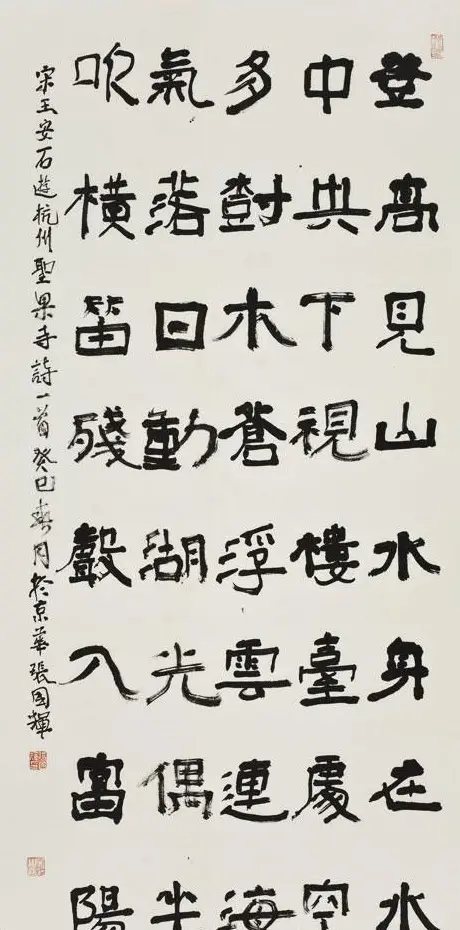 登高見山水身在水
中央下視樓臺處空
多樹木蒼浮雲連海
氣落日動湖光偶坐
吹橫笛殘聲入富陽
宋王安石遊杭州聖果寺詩一首癸巳春月於京華張國輝